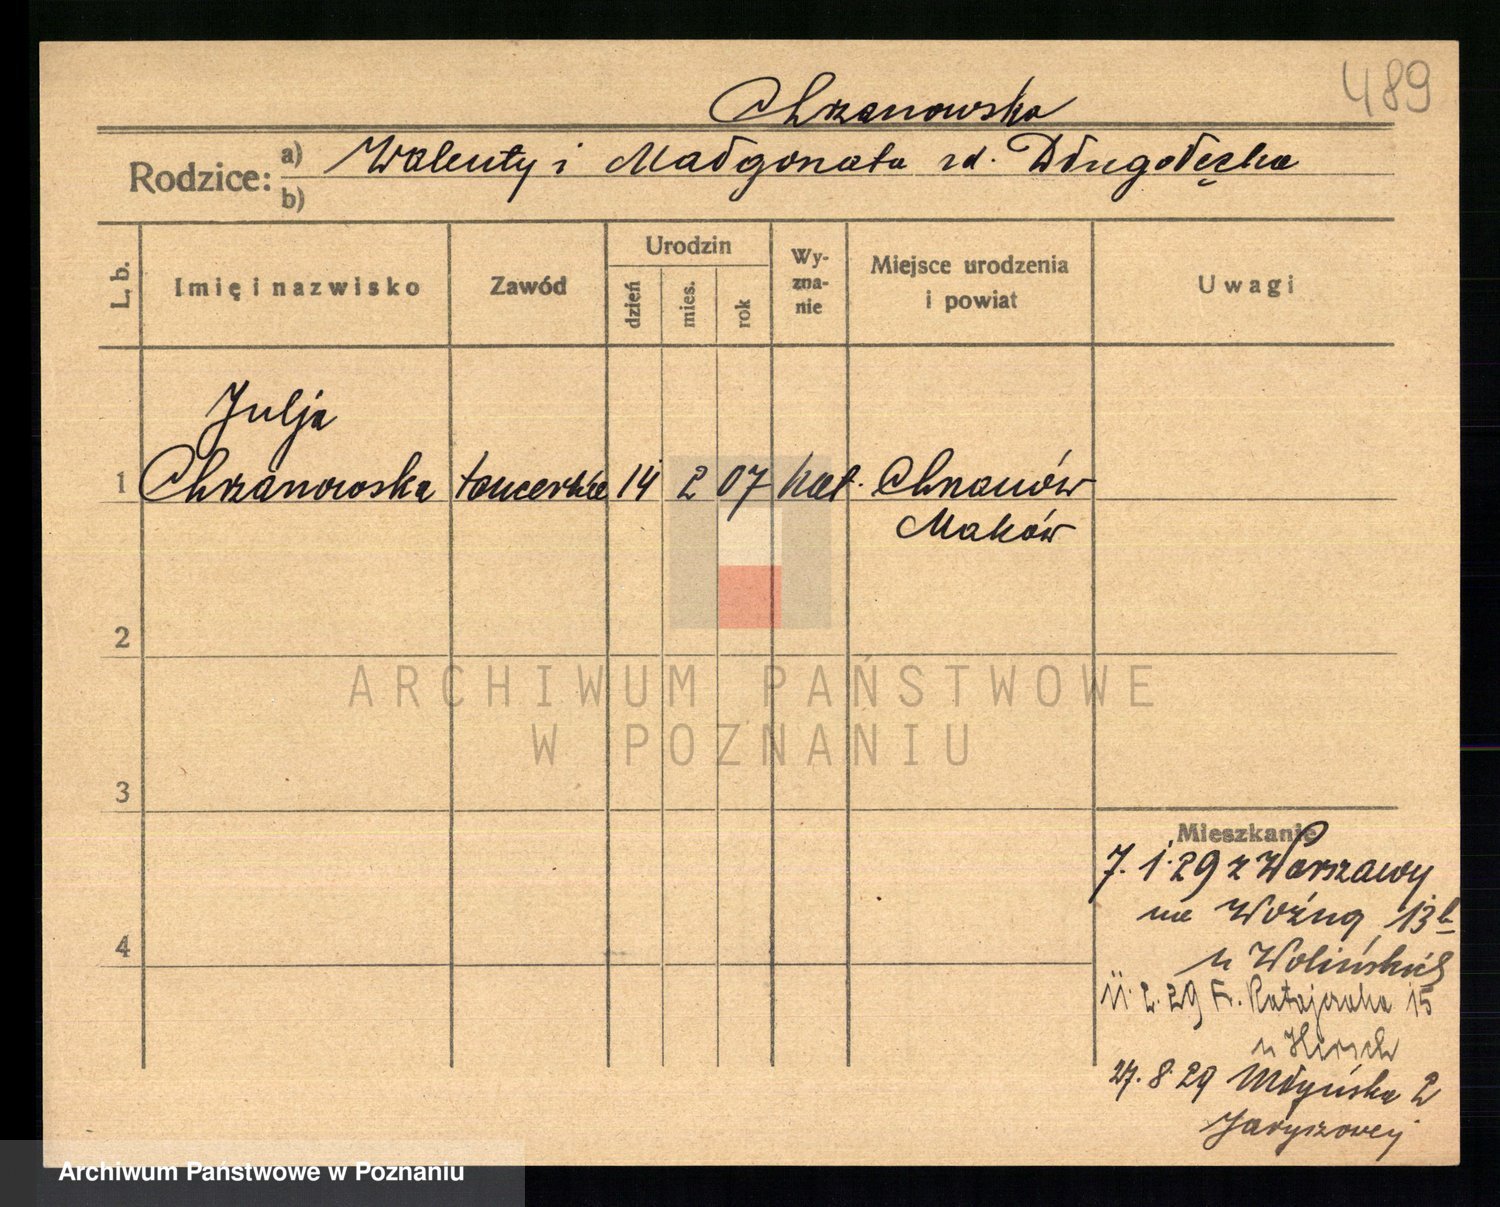 489
Chrzanowska
Rodzice: a) Walenty i Małgorzata zd. Długołęcka
b)
L. b. Imię i nazwisko Zawód Urodzin dzień mies. rok Wyznanie Miejsce urodzenia i powiat Uwagi
Julja
1 Chrzanowska tancerka 14 2 07 kat. Chrzanów
Maków
2
ARCHIWUM PAŃSTWOWE
W POZNANIU
3
Mieszkanie
7. 1. 29 z Warszawy
na Woźną 13b
u Wolińskiej
11. 2. 29 Fr. Ratajczaka 15
u Hirsch
27. 8 29 Młyńska 2
4
Archiwum Państwowe w Poznaniu